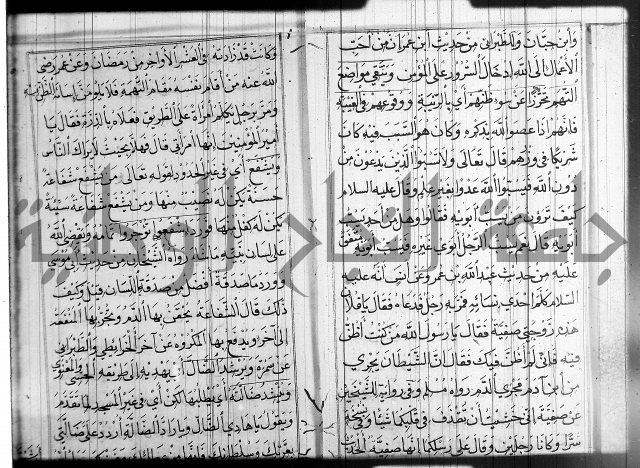 وابن حبان والطبراني من حديث ابن عمران من احب
الاعمال الى الله ادخال السرور على المؤمن ويتقي مواضع
التهم تحرزا عن سوء ظنهم اي بالريبة ووقوعهم في الغيبة
فانهم اذا عصوا الله بذكره وكان هو السبب فيه كان
شريكا في وزرهم قال تعالى ولا تسبوا الذين يدعون من
دون الله فيسبوا الله عدوا بغير علم وقال عليه السلام
كيف ترون من يسب ابويه فقالوا وهل من احد يسب
ابويه قال نعم يسب ابوي غيره فيسب ابويه متفق
عليه من حديث عبد الله بن عمرو وعن انس انه عليه
السلام كلم احدى نسائه فمر به رجل فدعاه فقال يا فلان
هذه زوجتي صفية فقال يا رسول الله من كنت اظن
فيه فاني لم اظن فيك فقال ان الشيطان يجري
من ابن ادم مجرى الدم رواه مسلم وفي رواية الشيخين
عن صفية اني خشيت ان يقذف في قلبكما شيئا وفي نسخة
شرا وكانا رجلين وقال على رسلكما انها صفية الحديث
وكانت قد زارته في العشر الاواخر من رمضان وعن عمر رضي
الله عنه من اقام نفسه مقام التهمة فلا يلومن من اساء الظن به
ومر برجل يكلم امراة على الطريق فعلاه بالدرة فقال يا
امير المؤمنين انها امراتي قال فهلا بحيث لا يراك الناس
ويشفع اي في غير الحدود لقوله تعالى من يشفع شفاعة
حسنة يكن له نصيب منها ومن يشفع شفاعة سيئة
يكن له كفل منها وورد اشفعوا توجروا ويقضي الله
على لسان نبيه ما شاء رواه الشيخان من حديث ابي موسى
وورد ما صدقة افضل من صدقة اللسان قيل وكيف
ذلك قال الشفاعة يحقن بها الدم ويجر بها المنفعة
الى اخر ويدفع بها المكروه عن اخر الخرائطي والطبراني
عن سمرة ويرشد الضال اي يهديه الى طريقه الحسي والمعنوي
وينشد ضالته اي يطلبها لكن اي في غير المسجد لما تقدم
ويقول يا هادي الضال ويا راد الضالة اردد على ضالتي
بعزتك وسلطانك فانها من
جامعة النجاح الوطنية